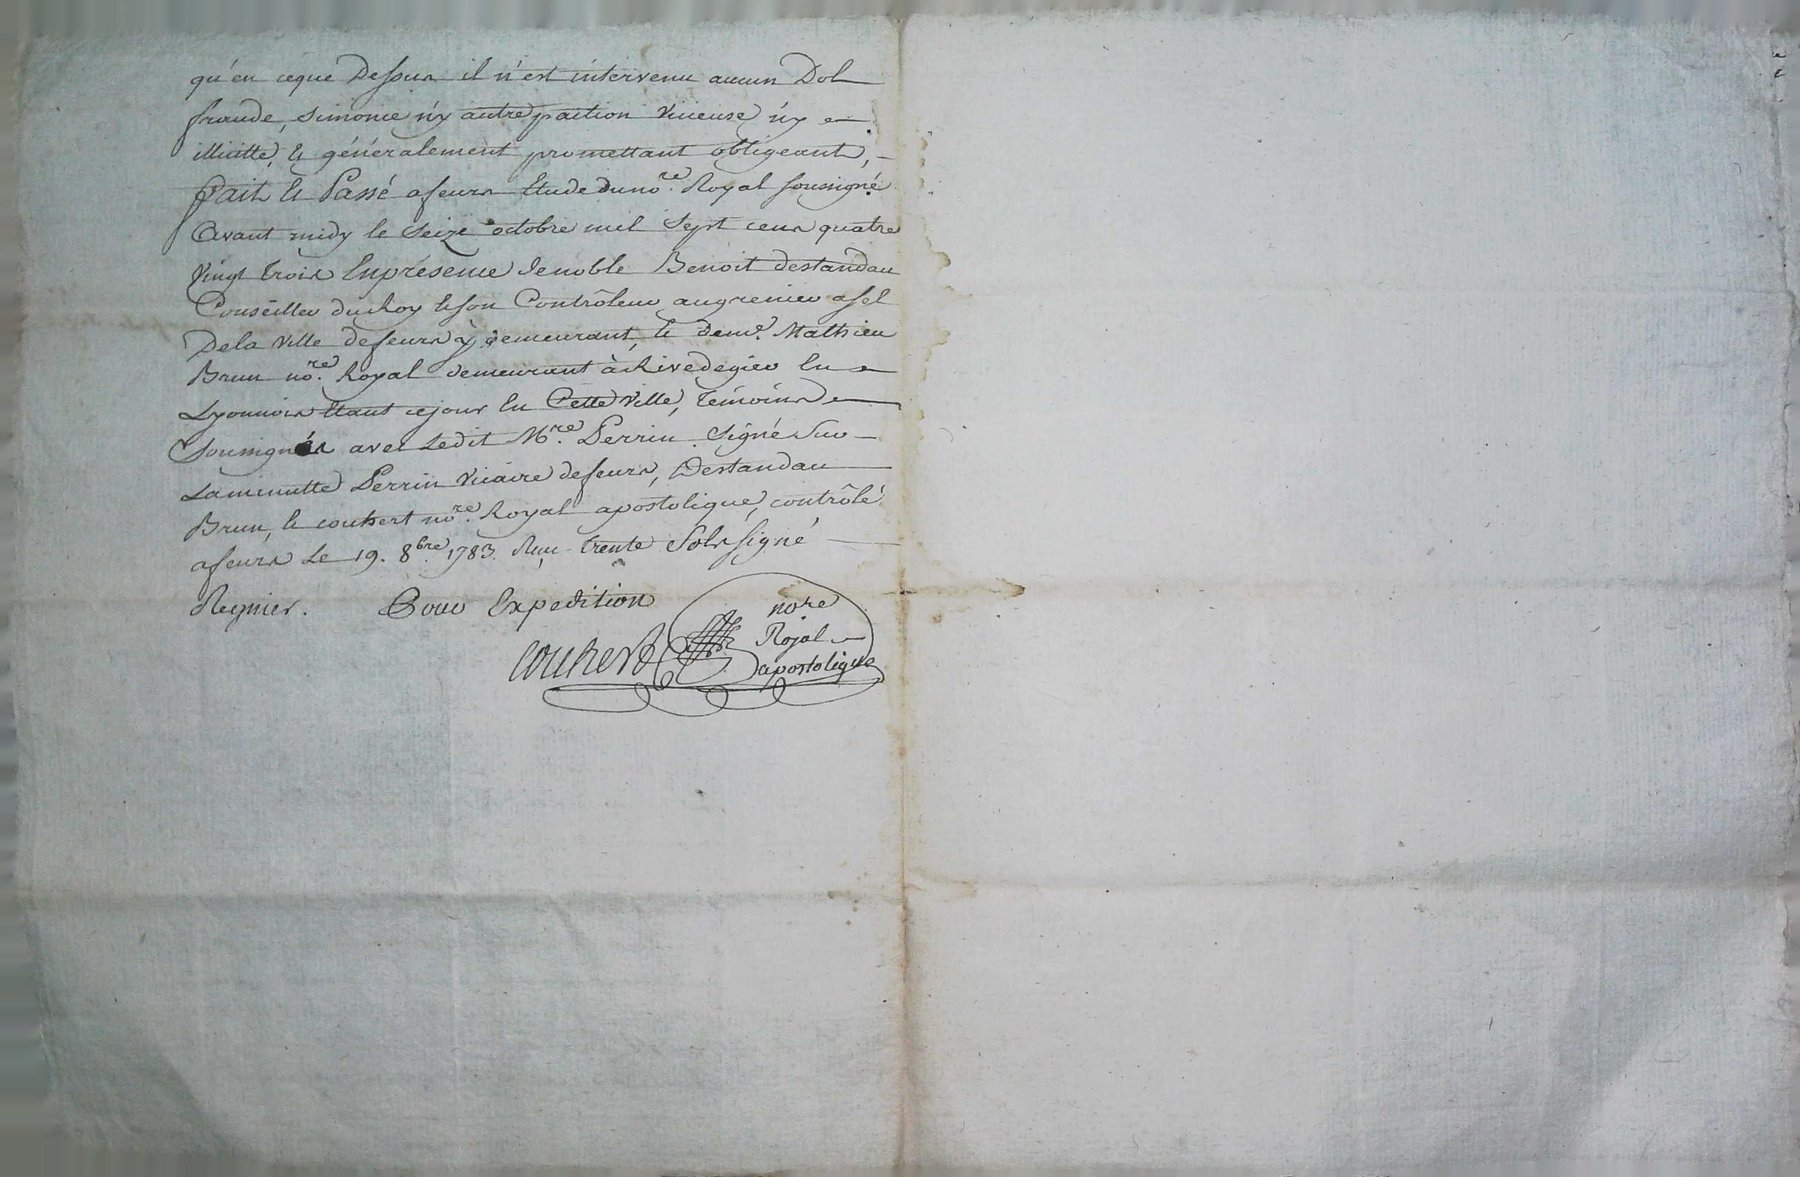 qu'en ceque Dessus il n'est intervenu aucun Dol
fraude, simonie n'y autre paction vicieuse n'y
illicitte, et généralement promettant obligeant,
fait et Passé afeurs Etude du no.re Royal soussigné
avant midy le seize octobre mil Sept cens quatre
vingt trois Enpresence denoble Benoit destandau
Conseiller du Roy et son Contrôleur augrenier asel
Dela ville defeurs y demeurant, et dem.e Mathieu
Brun no.re Royal demeurant à Rivedegier En
Lyonnois Etant cejour En Cette Ville, Témoins
Soussignés avec Ledit M.re Perrin. Signé Sur
Laminutte Perrin vicaire defeurs, Destandau
Brun, et couhert no.re Royal apostolique, contrôlé
afeurs Le 19. 8.bre 1783. Reçu trente Sols signé
Regnier. Pour Expedition
couhert nore
Royal
apostolique